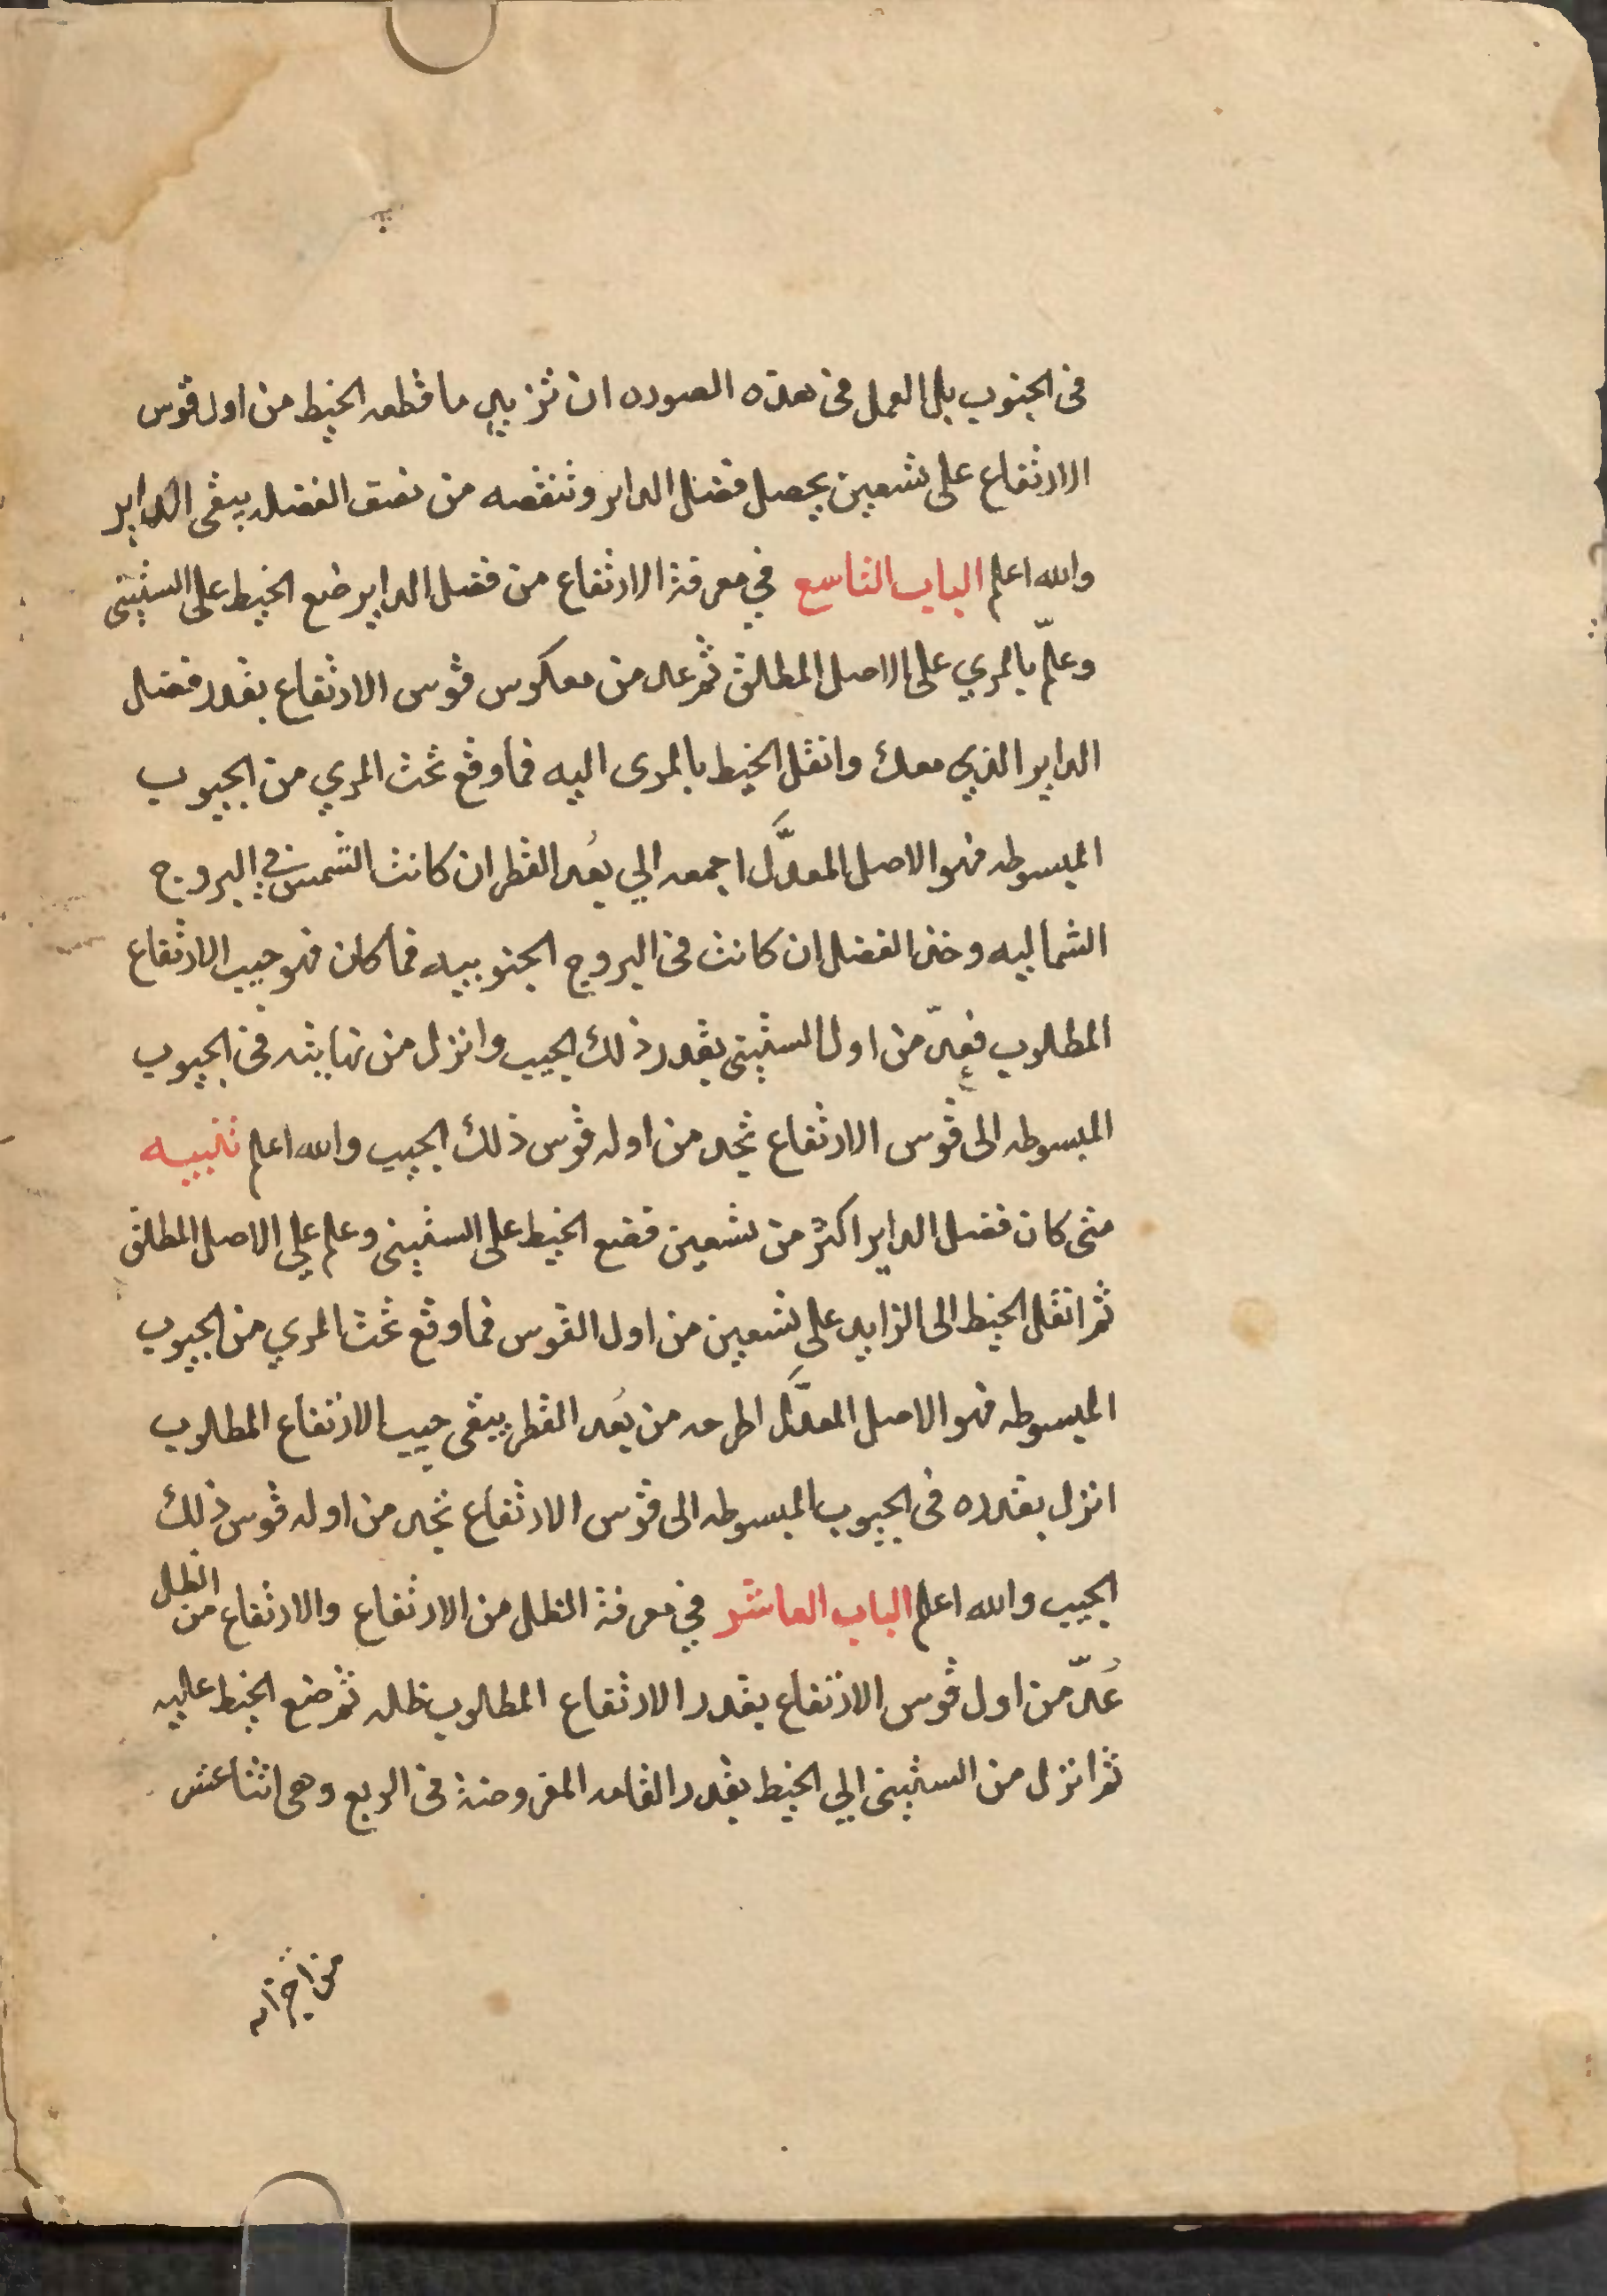 في الجنوب بل العمل في هذه الصوره ان تزيد ما قطعه الخيط من اول قوس
الارتفاع على تسعين يحصل فضل الداير وتنقصه من نصف الفضله يبقى الداير
والله اعلم الباب التاسع في معرفة الارتفاع من فضل الداير ضع الخيط على الستيني
وعلّم بالمري على الاصل المطلق ثم عد من معكوس قوس الارتفاع بقدر فضل
الداير الذي معك وانقل الخيط بالمرى اليه فما وقع تحت المري من الجيوب
المبسوطه فهو الاصل المعدَّل اجمعه الي بُعد القطر ان كانت الشمس في البروج
الشماليه وخذ الفضل ان كانت في البروج الجنوبيه فما كان فهو جيب الارتفاع
المطلوب فعدّ من اول الستيني بقدر ذلك الجيب وانزل من نهايته في الجيوب
المبسوطه الى قوس الارتفاع تجد من اوله قوس ذلك الجيب والله اعلم تنبيه
متى كان فضل الداير اكثر من تسعين فضع الخيط على الستيني وعلم علي الاصل المطلق
ثم انقل الخيط الى الزايد على تسعين من اول القوس فما وقع تحت المري من الجيوب
المبسوطه فهو الاصل المعدَّل اطرحه من بُعد القطر يبقى جيب الارتفاع المطلوب
انزل بقدره في الجيوب المبسوطه الى قوس الارتفاع تجد من اوله قوس ذلك
الجيب والله اعلم الباب العاشر في معرفة الظل من الارتفاع والارتفاع من الظل
عُدّ من اول قوس الارتفاع بقدر الارتفاع المطلوب ظله ثم ضع الخيط عليه
ثم انزل من الستيني الي الخيط بقدر القامه المفروضة في الربع وهي اثنا عشر
من اجزاء